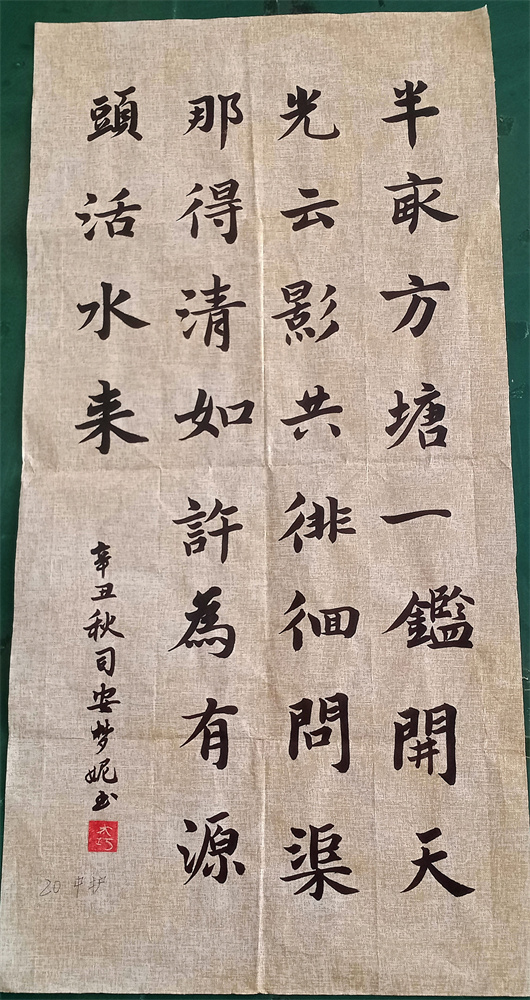 半亩方塘一鑑開天
光云影共徘徊問渠
那得清如許為有源
頭活水来
辛丑秋司安梦妮书
大巧
20中护